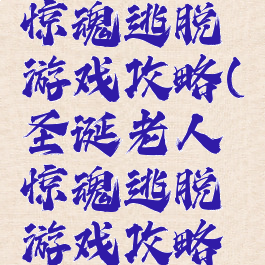 惊魂逃脱
游戏攻略(
圣诞老人
惊魂逃脱
游戏攻略